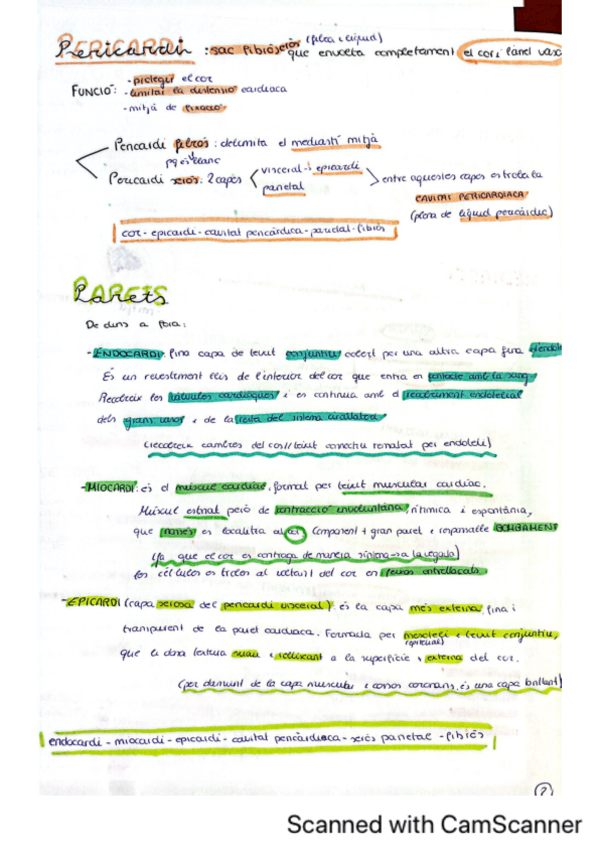 PERICARDI : sac fibrós-serós (fibra i líquid) que envolta completament el cor i l'arrel vasc
FUNCIÓ: - protegir el cor
- limitar la distensió cardíaca
- mitjà de fixació
Pericardi fibrós: delimita el mediastí mitjà
pq és blanc
Pericardi serós: 2 capes visceral → epicardi
parietal
entre aquestes capes es troba la
CAVITAT PERICARDIACA
(plena de líquid pericàrdic)
cor - epicardi - cavitat pericàrdica - parietal - fibrós
PARETS
De dins a fora:
- ENDOCARDI: fina capa de teixit conjuntiu cobert per una altra capa fina d'endoteli
És un revestiment llis de l'interior del cor que entra en contacte amb la sang
Recobreix les vàlvules cardíaques i es continua amb el recobriment endotelial
dels grans vasos i de la resta del sistema circulatori
(recobreix cambres del cor // teixit connectiu rematat per endoteli)
- MIOCARDI: és el múscul cardíac, format per teixit muscular cardíac.
Múscul estriat però de contracció involuntària, rítmica i espontània,
que només es localitza al cor. Component + gran paret i responsable BOMBAMENT
(fa que el cor es contraga de manera síncrona a la vegada)
les cèl·lules es troben al voltant del cor en feixos entrellaçats
- EPICARDI (capa serosa del pericardi visceral): és la capa més externa, fina i
transparent de la paret cardíaca. Formada per mesoteli i teixit conjuntiu,
(epitelial)
que li dona textura suau i relliscant a la superfície + externa del cor.
(per damunt de la capa muscular i vasos coronaris, és una capa brillant)
endocardi - miocardi - epicardi - cavitat pericàrdiaca - serós parietal - fibrós
2
Scanned with CamScanner